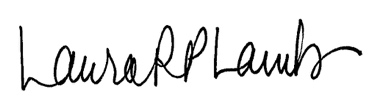 Laura R P Lamb